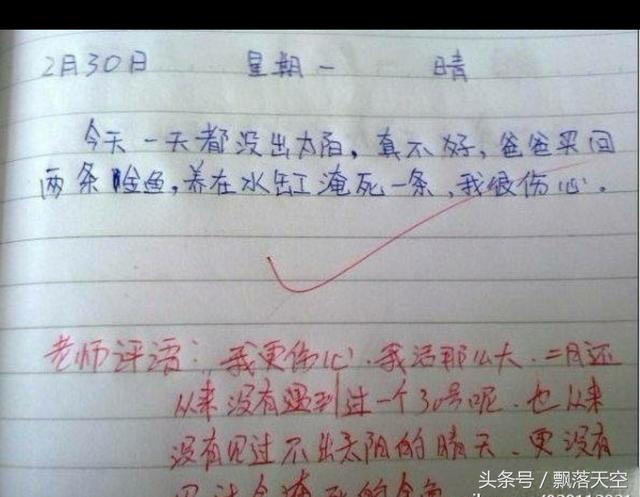 2月30日 星期一 晴
今天一天都没出太阳,真不好,爸爸买回
两条金鱼,养在水缸淹死一条,我很伤心。
老师评语:我更伤心.我活那么大.二月还
从来没有遇到过一个30号呢.也从来
没有见过不出太阳的晴天.更没有
头条号/飘落天空